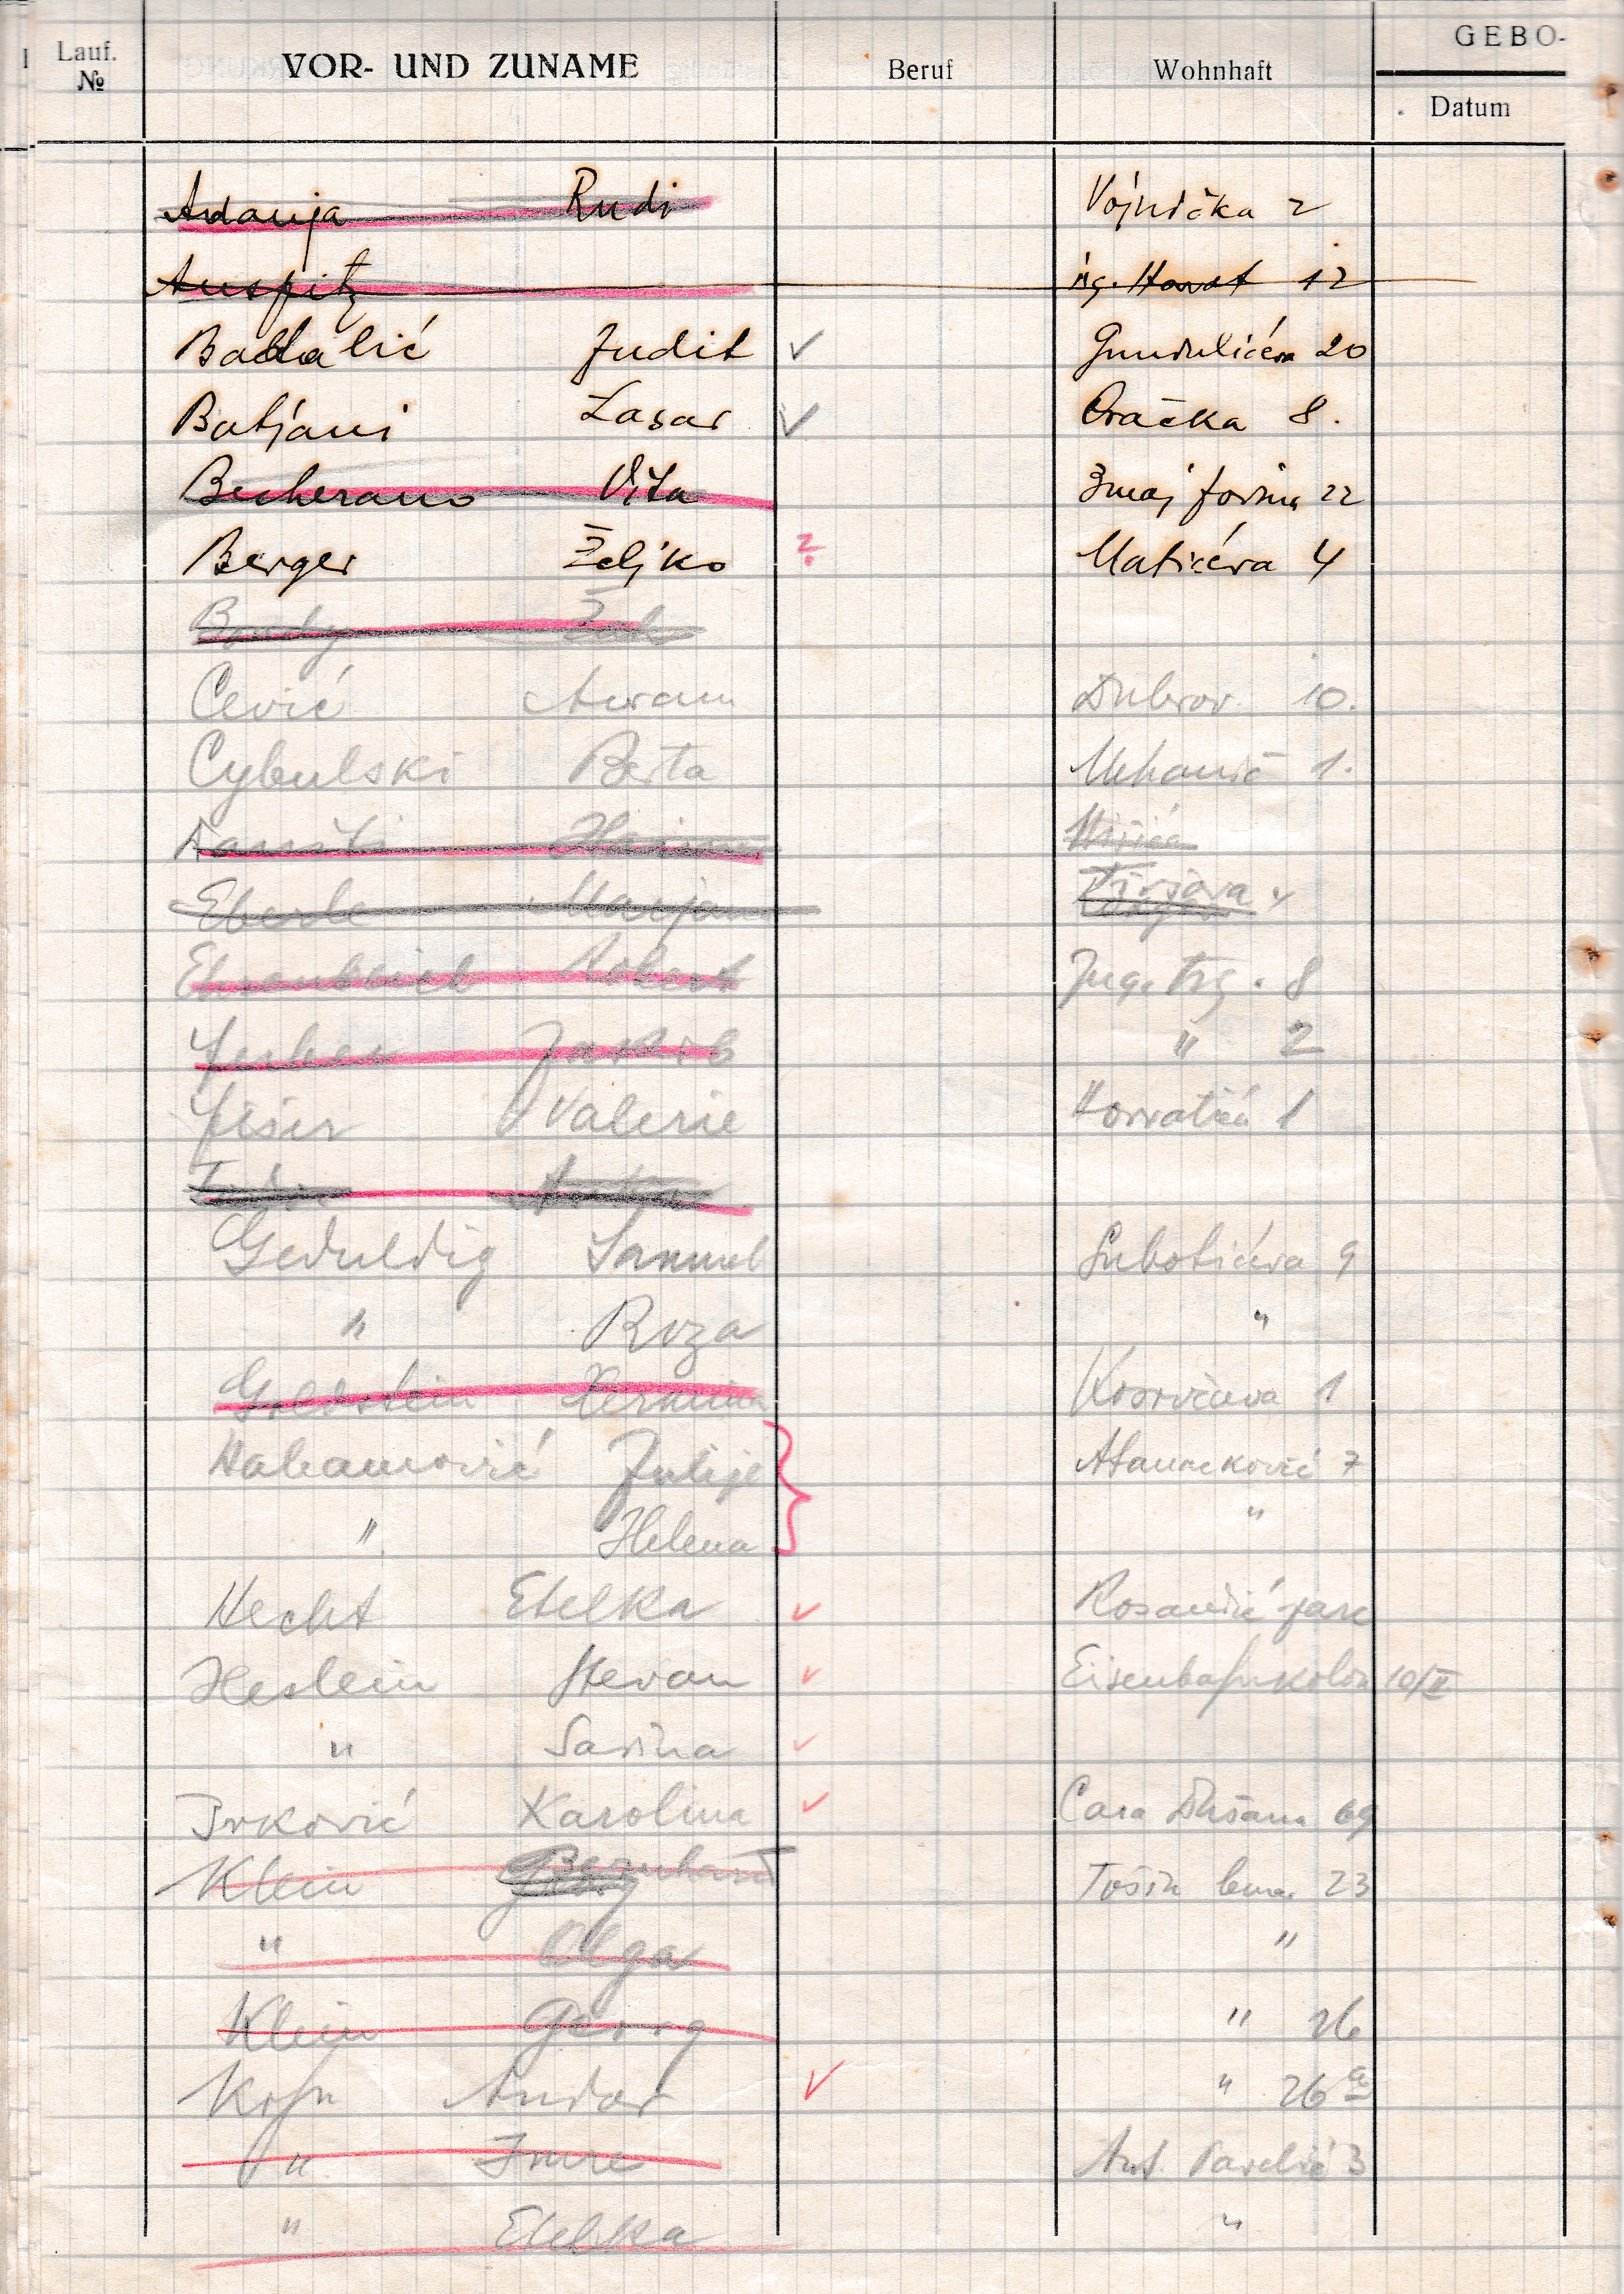 Lauf. № VOR- UND ZUNAME Beruf Wohnhaft GEBO-
Datum
Adanja Rudi Vojnička 2
Auspitz 12
Judit ✓ Gundulićeva 20
Batjani Lasar ✓ Oračka 8.
Becherano Vita Zmaj Jovina 22
Berger Željko ? Matićeva 4
Cević Avram Dubrov. 10.
Cybulski Berta Mehanič 1.
Eberle Marjan
Robert Jug. trg. 8
Jakob " 2
Fišer Valerie 1
Geduldig Samuel Subotićeva 9
" Roza "
Goldstein Hermina 1
Habamović Julije 7
" Helena "
Hecht Etelka ✓
Heslein Stevan ✓ Eisenbahnkolon 10/II
" Sarina ✓
Irković Karolina ✓ Cara Dušana 69
Klein Bernhard Tošin 23
" Olga "
Klein Georg " 26
Kohn Andor ✓ " 26a
" Imre Ant. Pavelić 3
" Etelka "